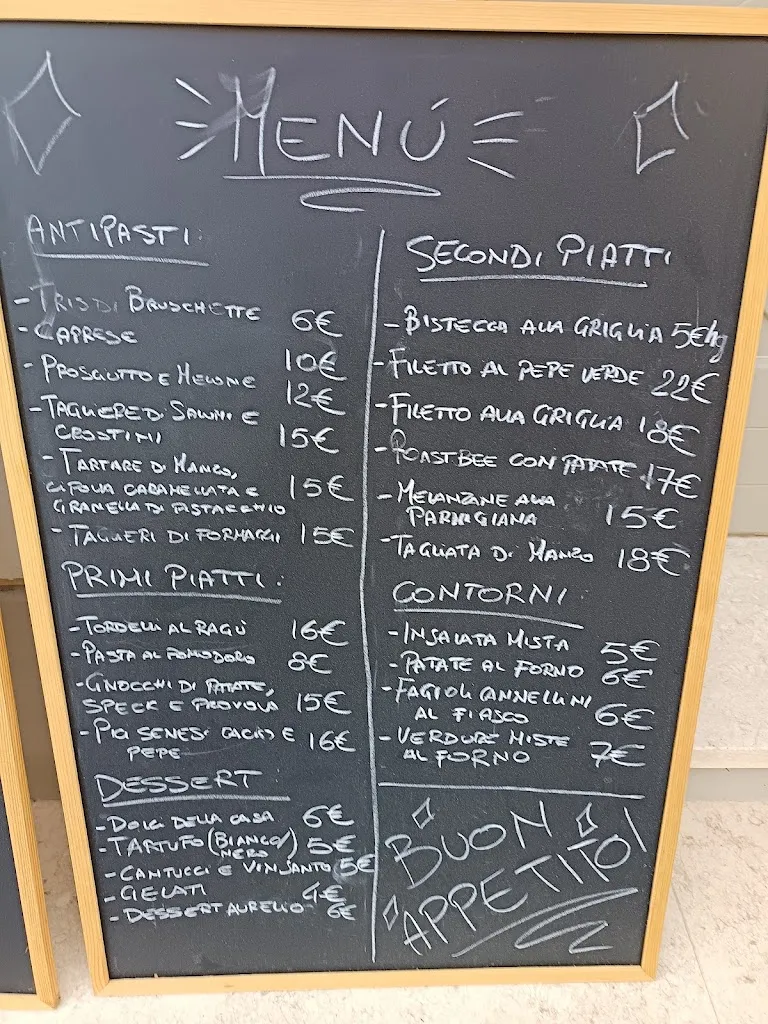 MENÚ
ANTIPASTI:
- TRIS DI BRUSCHETTE 6€
- CAPRESE 10€
- PROSCIUTTO E MELONE 12€
- TAGLIERE DI SALUMI E
CROSTINI 15€
- TARTARE DI MANZO,
CIPOLLA CARAMELLATA E 15€
GRANELLA DI PISTACCHIO
- TAGLIERI DI FORMAGGI 15€
PRIMI PIATTI:
- TORDELLI AL RAGÙ 16€
- PASTA AL POMODORO 8€
- GNOCCHI DI PATATE,
SPECK E PROVOLA 15€
- PICI SENESI CACIO E
PEPE 16€
DESSERT
- DOLCI DELLA CASA 6€
- TARTUFO (BIANCO/ 5€
NERO
- CANTUCCI E VINSANTO 5€
- GELATI 4€
- DESSERT AURELIO 6€
SECONDI PIATTI
- BISTECCA ALLA GRIGLIA 5€/hg
- FILETTO AL PEPE VERDE 22€
- FILETTO ALLA GRIGLIA 18€
- ROASTBEE CON PATATE 17€
- MELANZANE ALLA
PARMIGIANA 15€
- TAGLIATA DI MANZO 18€
CONTORNI:
- INSALATA MISTA 5€
- PATATE AL FORNO 6€
- FAGIOLI CANNELLINI
AL FIASCO 6€
- VERDURE MISTE
AL FORNO 7€
BUON
APPETITO!